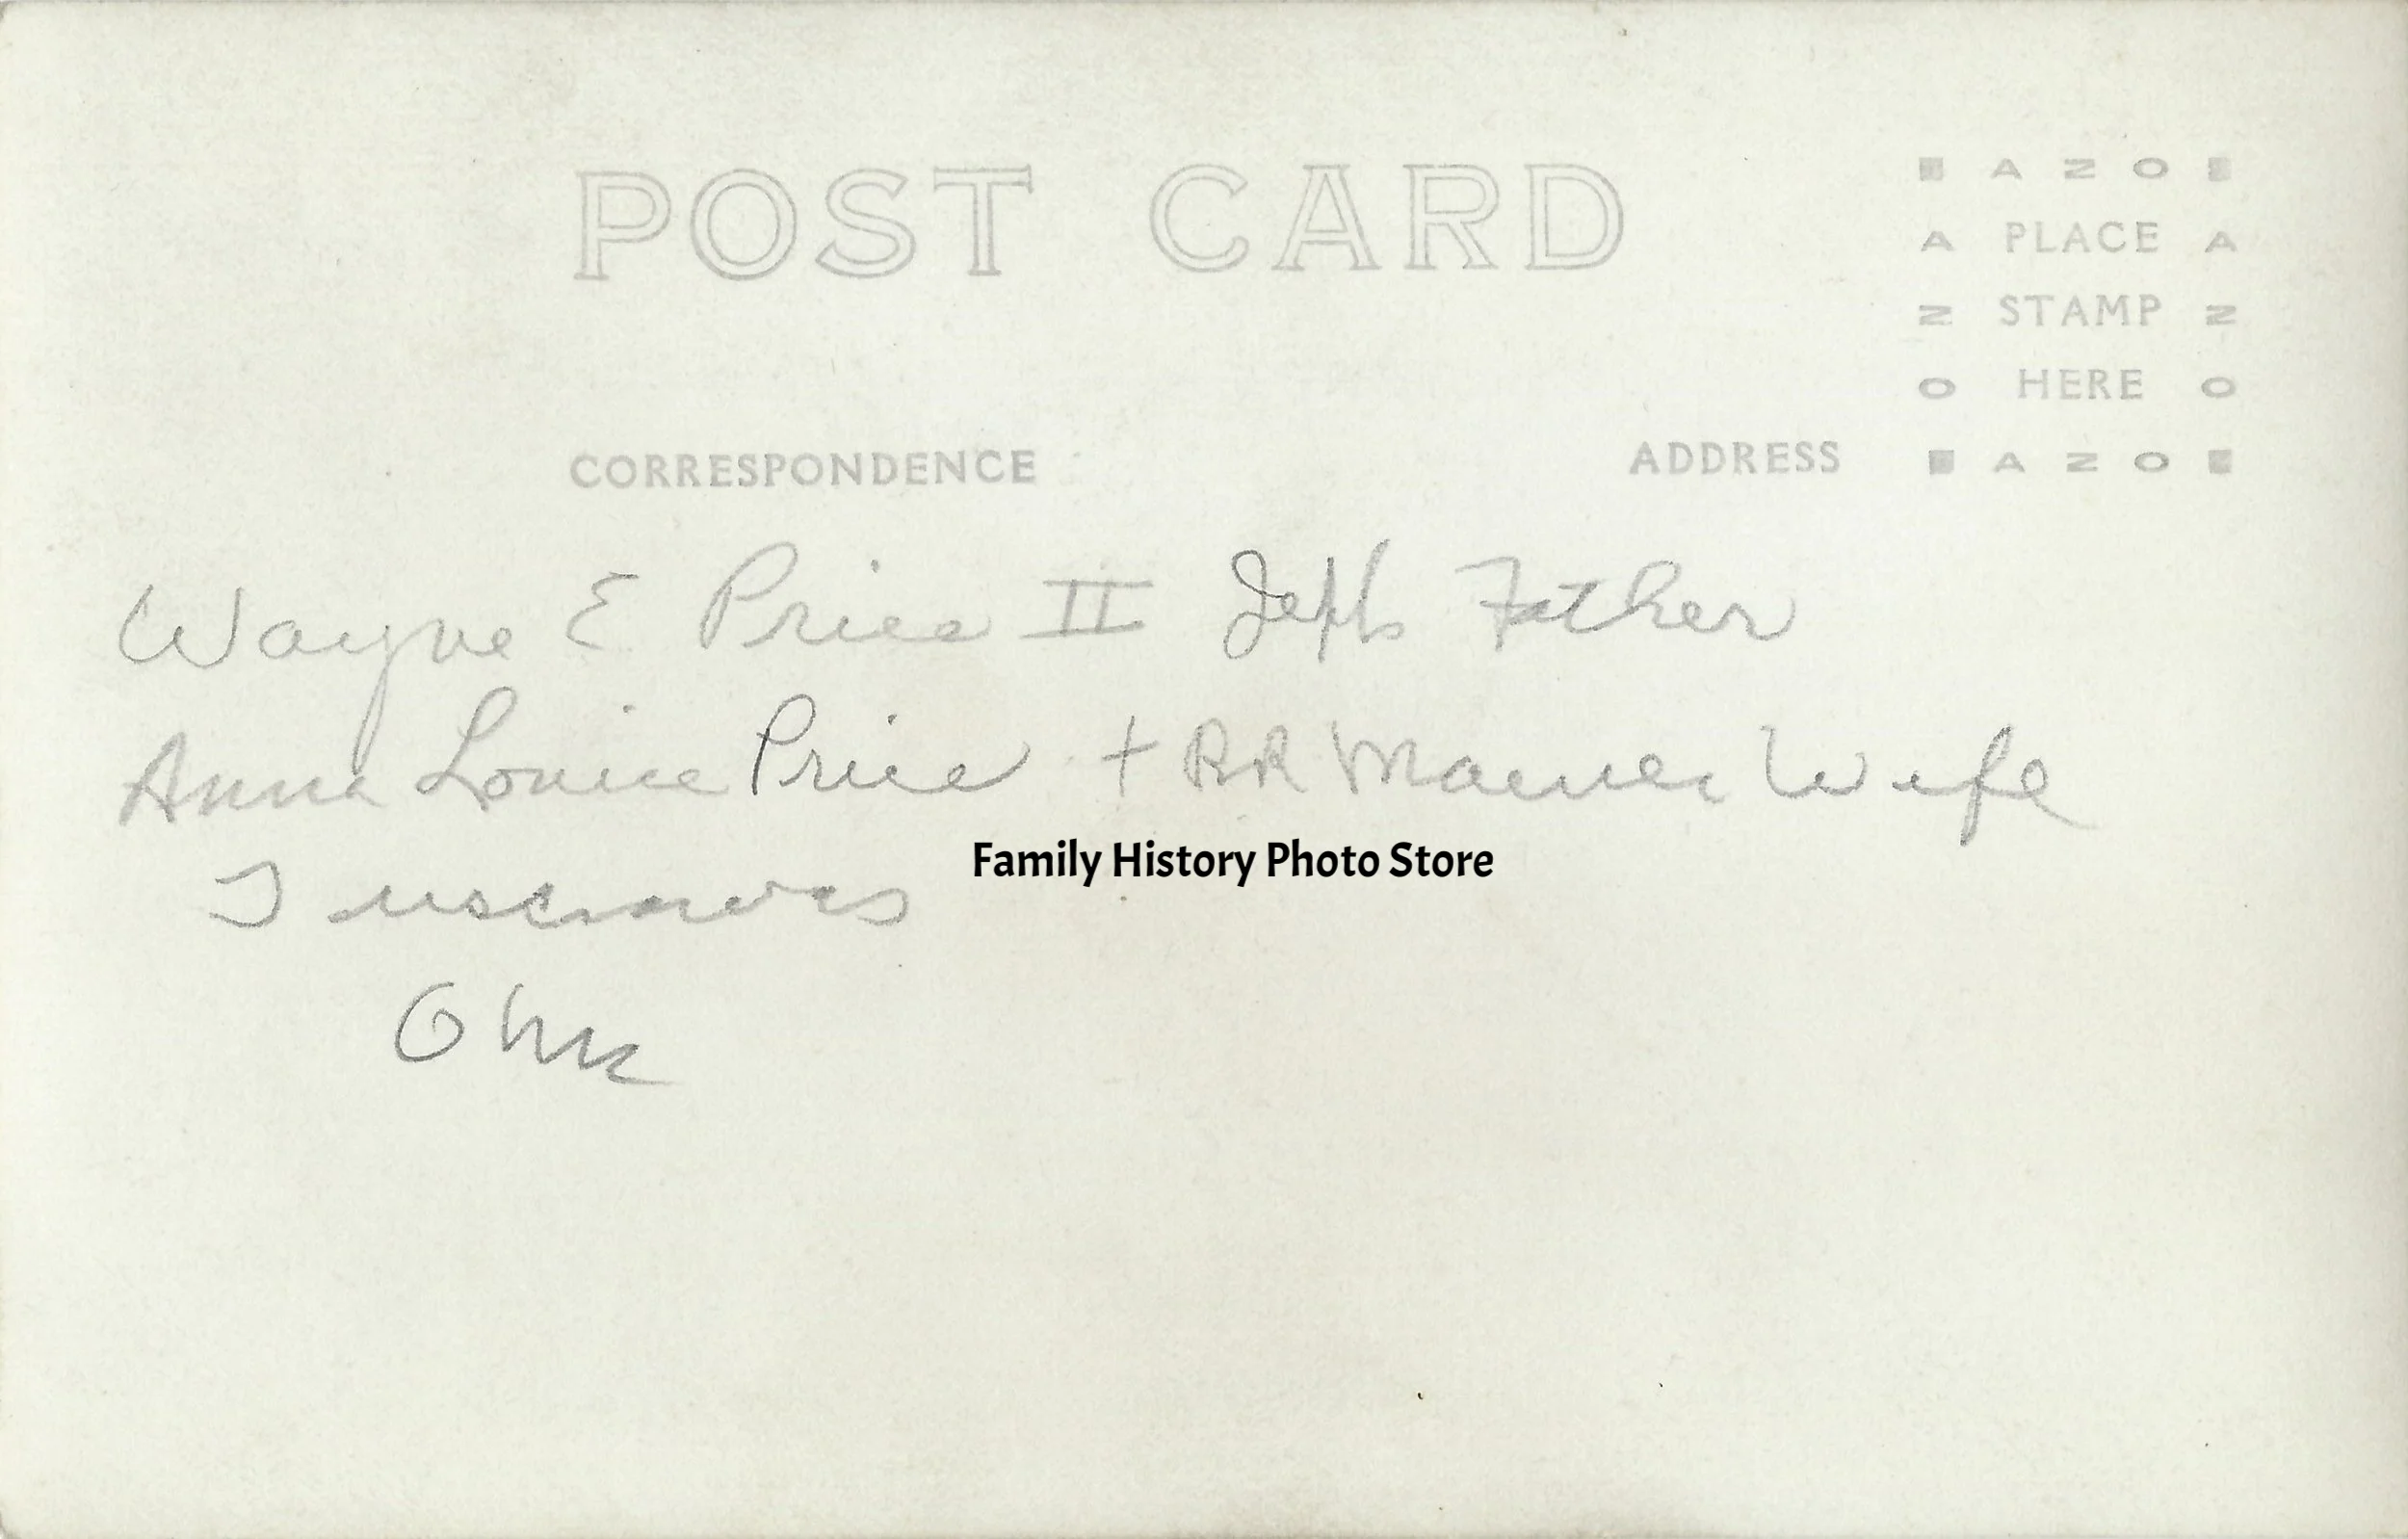 POST CARD
AZO
A PLACE A
Z STAMP Z
O HERE O
CORRESPONDENCE ADDRESS AZO
Wayne E Price II Jeffs Father
Anna Louise Price + RR Wife
Family History Photo Store
Tuscarawas
Ohio